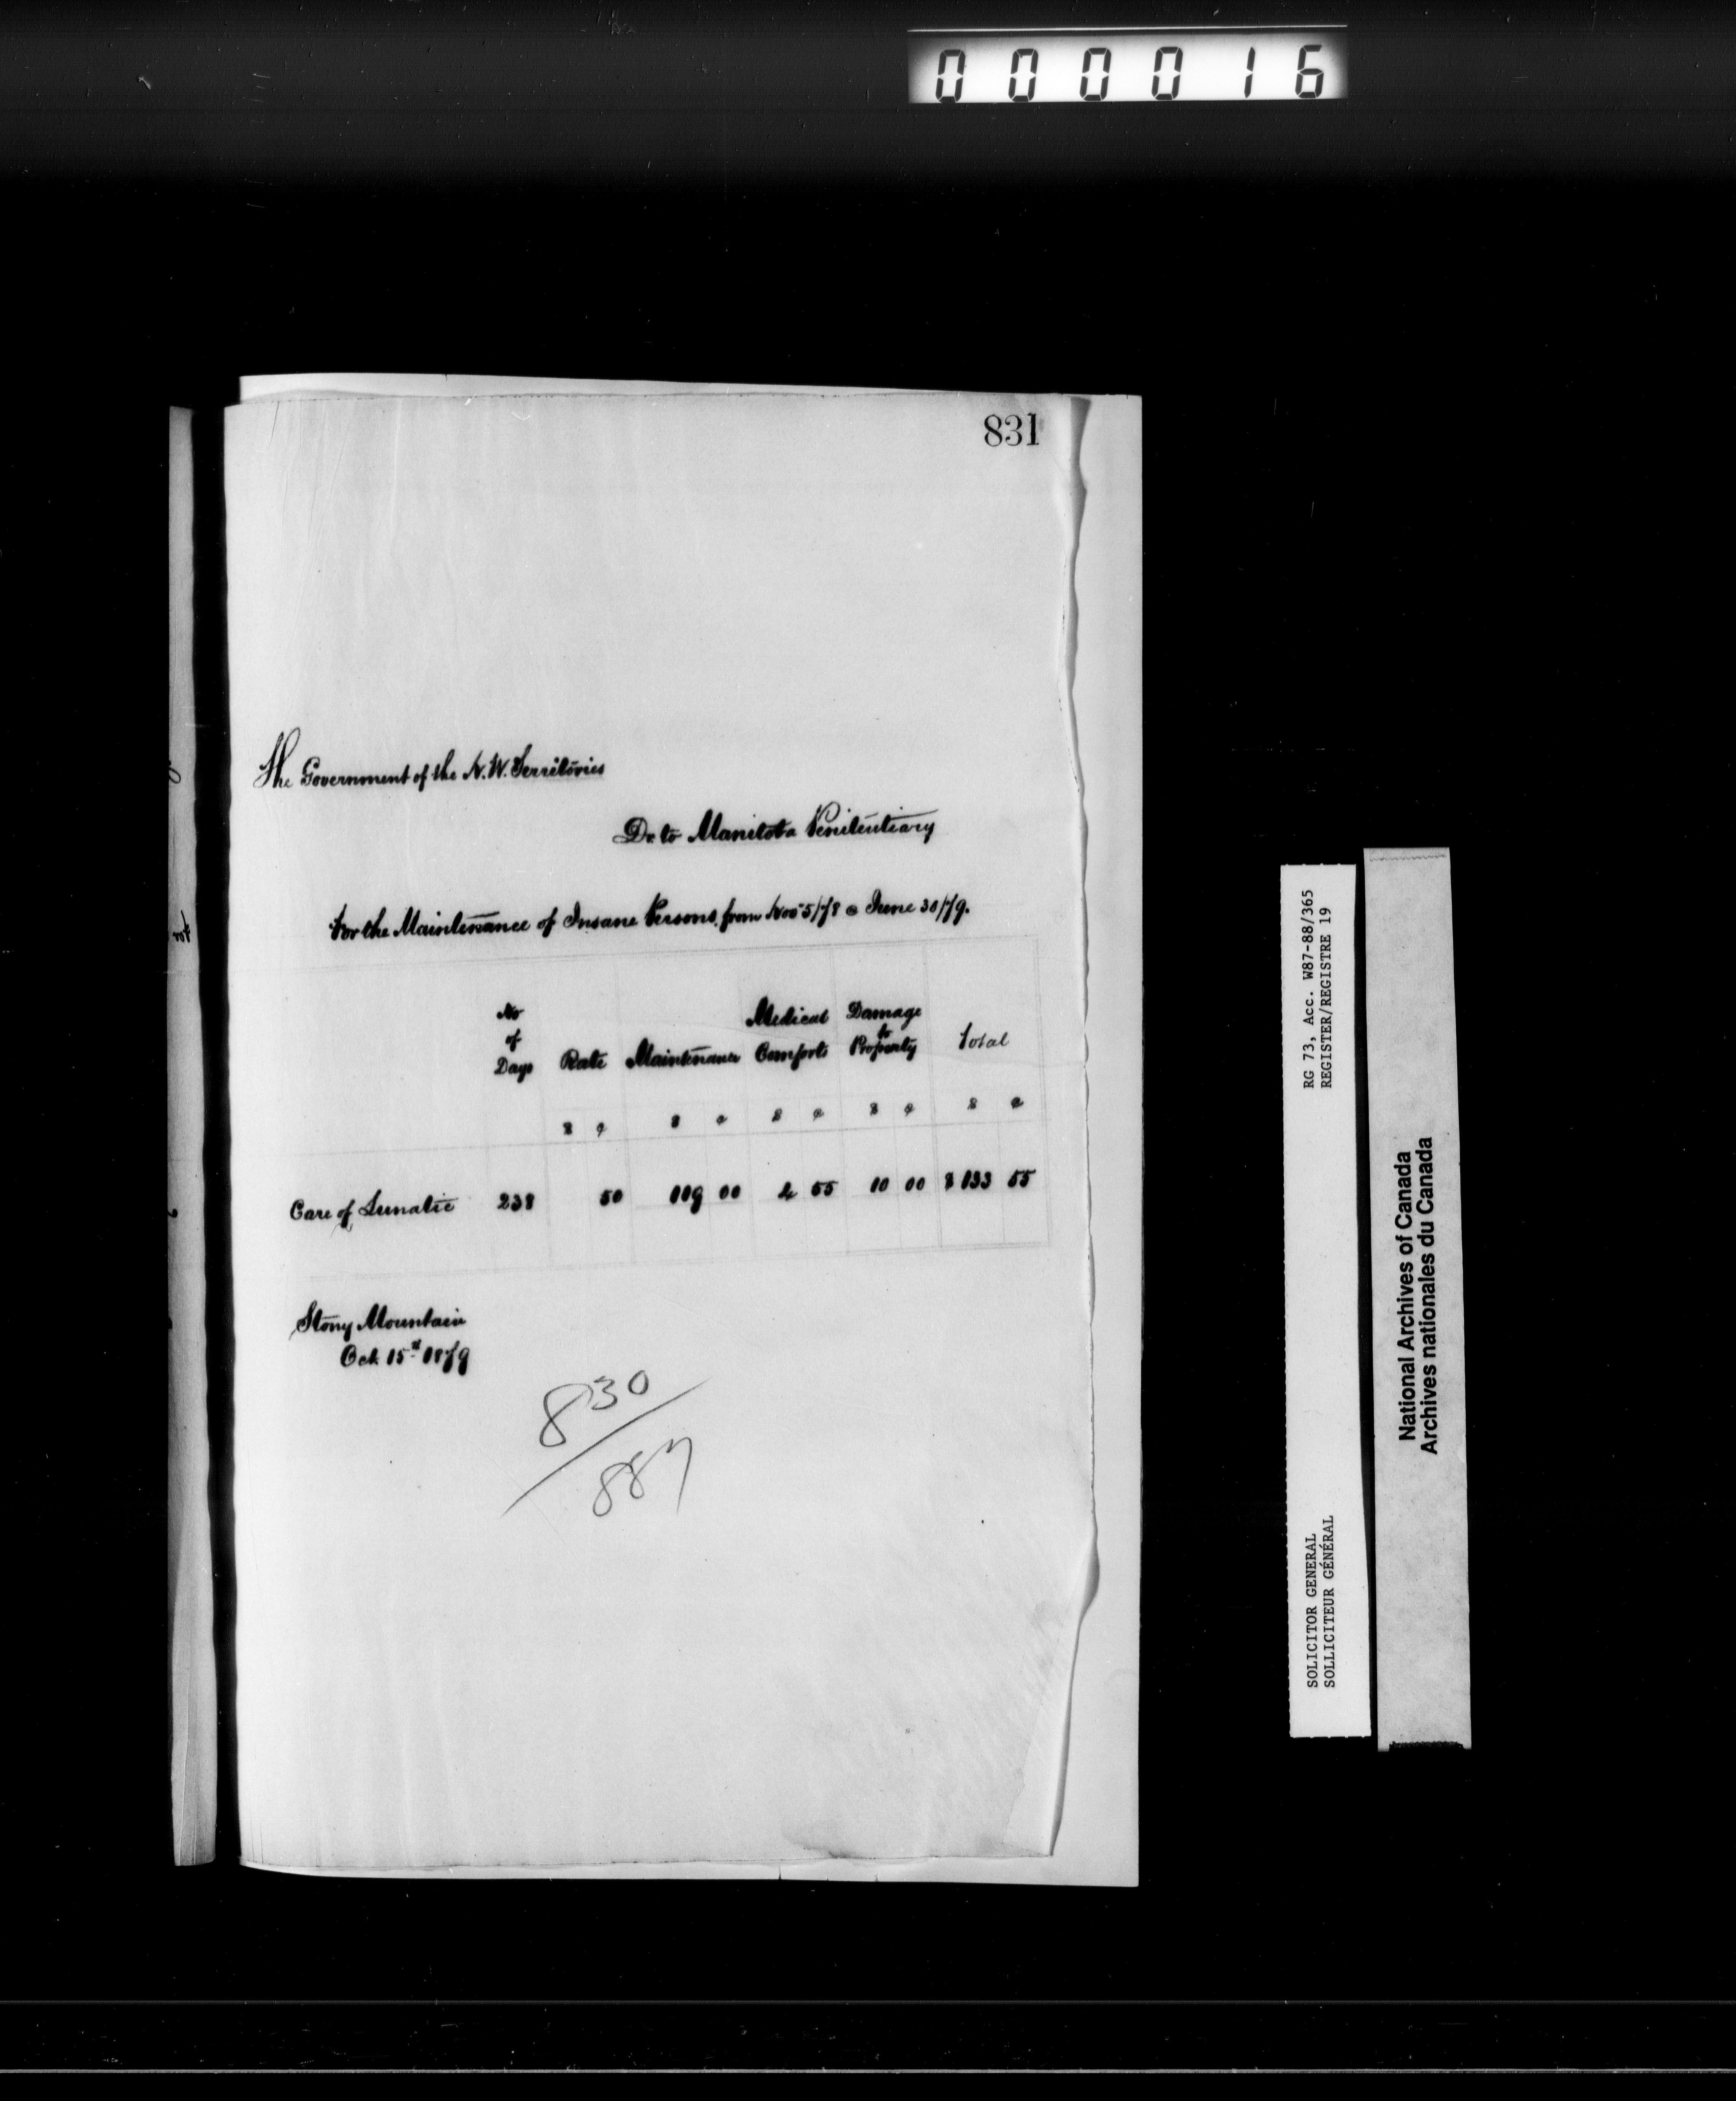 000016
831
The Government of the N. W. Territories
Dr. to Manitoba Penitentiary
For the Maintenance of Insane Persons from Nov 5/78 @ June 30/79.
No of Days Rate Maintenance Medical Comforts Damage to Property Total
$ c $ c $ c $ c $ c
Care of Lunatic 238 50 119 00 4 55 10 00 $ 133 55
Stony Mountain
Oct. 15th 1879
830
887
RG 73, Acc. W87-88/365
REGISTER/REGISTRE 19
SOLICITOR GENERAL
SOLLICITEUR GÉNÉRAL
National Archives of Canada
Archives nationales du Canada